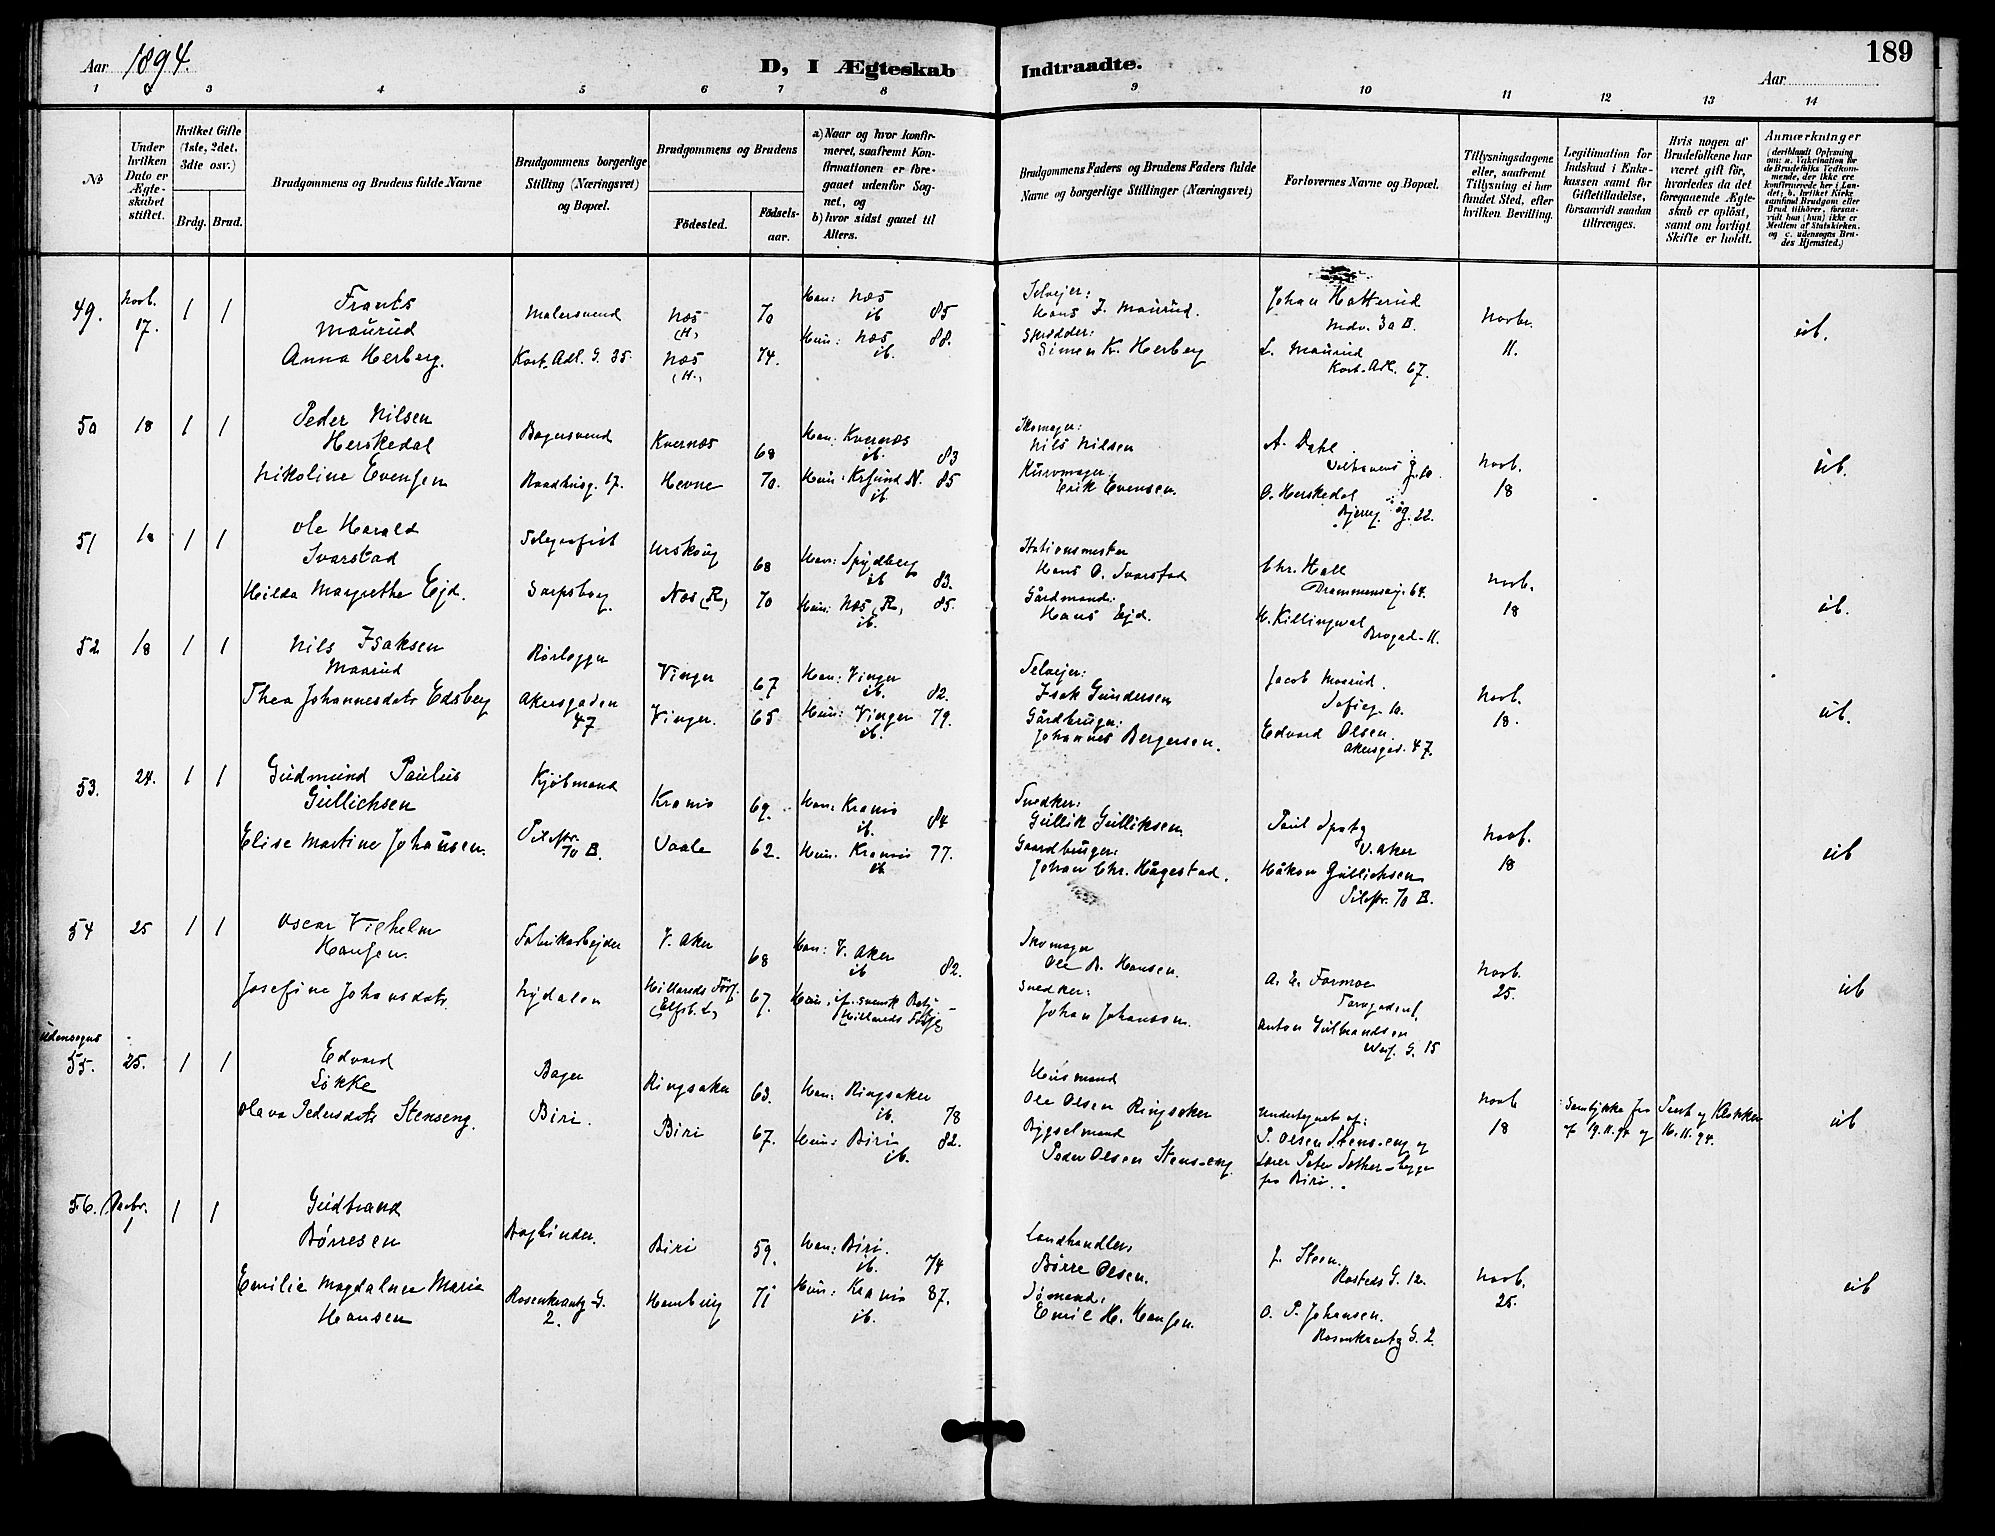 Aar 1894.
D, I Ægteskab Indtraadte.
189
Aar
1 2 3 4 5 6 7 8 9 10 11 12 13 14
No
Under hvilken Dato er Ægteskabet stiftet.
Hvilket Gifte (1ste, 2det, 3die osv.)
Brdg. Brud.
Brudgommens og Brudens fulde Navne
Brudgommens borgerlige Stilling (Næringsvei) og Bopæl.
Brudgommens og Brudens
Fødested.
Fødselsaar.
a) Naar og hvor konfirmeret, saafremt Konfirmationen er foregaaet udenfor Sognet, og
b) hvor sidst gaaet til Alters.
Brudgommens Faders og Brudens Faders fulde Navne og borgerlige Stillinger (Næringsvei)
Forlovernes Navne og Bopæl.
Tillysningsdagene eller, saafremt Tillysning ei har fundet Sted, efter hvilken Bevilling.
Legitimation for Indskud i Enkekassen samt for Giftetilladelse, forsaavidt saadan tiltrænges.
Hvis nogen af Brudefolkene har været gift før, hvorledes da det foregaaende Ægteskab er opløst, samt om lovligt Skifte er holdt.
Anmærkninger
(deriblandt Oplysning om: a. Vakcination for de Brudefolks Vedkommende, der ikke ere konfirmerede her i Landet; b. hvilket Kirkesamfund Brudgom eller Brud tilhører, forsaavidt han (hun) ikke er Medlem af Statskirken, og c. udensogns Brudes Hjemsted.)
49. Novb. 17. 1 1
Frants Maurud
Anna Herberg.
Malersvend
Kort. Adl. G. 35.
Næs (H.) 70
Næs (H.) 74.
Han: Næs ib 85
Hun: Næs ib. 88.
Selvejer: Hans J. Maurud.
Skrædder: Simen K. Herberg
Johan Hatterud
Mdv. 30 B.
L. Maurud
Kort. Adl. 67.
Novbr. 11.
ib.
50 18 1 1
Peder Nilsen Herskedal
Nikoline Evensen
Bagersvend
Raadhusg. 17.
Kvernæs 68
Hevne 70.
Han: Kvernæs ib. 83
Hun: Krsund N. ib 85
Skomager: Nils Nilsen
Kurvmager Erik Evensen.
A. Dahl
Welhavens g. 10
O. Herskedal
22.
Novb. 18
ib.
51 18 1 1
Ole Harald Svarstad
Hilda Margrethe Ejd.
Telegrafist
Sarpsborg
Urskoug 68
Næs (R.) 70
Han: Spydberg ib 83.
Hun: Næs (R.) ib. 85.
Stationsmester Hans O. Svarstad
Gårdmand: Hans Ejd.
Chr. Hall
Drammensvej. 64.
H. Killingmal
Brogad. 11.
Novb. 18
ib.
52 18 1 1
Nils Isaksen Maarud
Thea Johannesdatr Edsberg
Rørlægger
Akersgaden 47
Vinger 67
Vinger. 65
Han: Vinger ib. 82.
Hun: Vinger ib. 79.
Selvejer: Isak Gundersen
Gårdbruger: Johannes Bergersen.
Jacob Maarud.
Sofieg. 10.
Edvard Olsen
Akersgad. 47.
Novb. 18.
ib.
53. 24. 1 1
Gudmund Paulus Gullichsen
Elise Martine Johansen.
Kjøbmand
Pilestr. 70 B.
Krania 69.
Vaale 62.
Han: Krania ib. 84
Hun. Krania ib 77.
Snedker: Gullik Gulliksen
Gaardbruger: Johan Chr. Hågestad.
Paul
V. Aker
Håkon Gullichsen
Pilestr. 70 B.
Novb. 18
ib
54 25 1 1
Oscar Vilhelm Hansen.
Josefine Johansdatr.
Fabrikarbejder
Nydalen
V. Aker 68
Hillareds Förs. (Elfsb. L.) 67.
Han: V. Aker ib 82.
Hun: if. svensk
Hillareds
Skomager Ole B. Hansen.
Snedker: Johan Johansson.
A. E. Formoe
Torvgaden
Anton Gulbrandsen
15
Novb. 25.
ib
udensogns
55. 25. 1 1
Edvard Løkke
Olava Pedersdatr Stenseng.
Bager
Biri.
Ringsaker 63.
Biri 67.
Han: Ringsaker ib. 78
Hun: Biri ib. 82.
Husmand Ole Olsen Ringsaker
Bygselmand Peder Olsen Stenseng
undertegnet af:
P. Olsen Stenseng og
Lærer Peter
fra Biri.
Novb 18
Samtykke fra
af 19.11.94 og
Præst og Klokker
16.11.94.
ib
56. Decbr. 1 1 1
Gudbrand Børresen
Emilie Magdalene Marie Hansen
Bogbinder.
Rosenkrantz G. 2.
Biri 59.
Hamburg 71
Han: Biri. ib. 74
Hun: Krania ib. 87.
Landhandler Børre Olsen.
Sømand: Emil H. Hansen.
J. Steen.
Rosteds G. 12.
O. P. Johansen.
Rosenkrantz G. 2.
Novb. 25.
ib